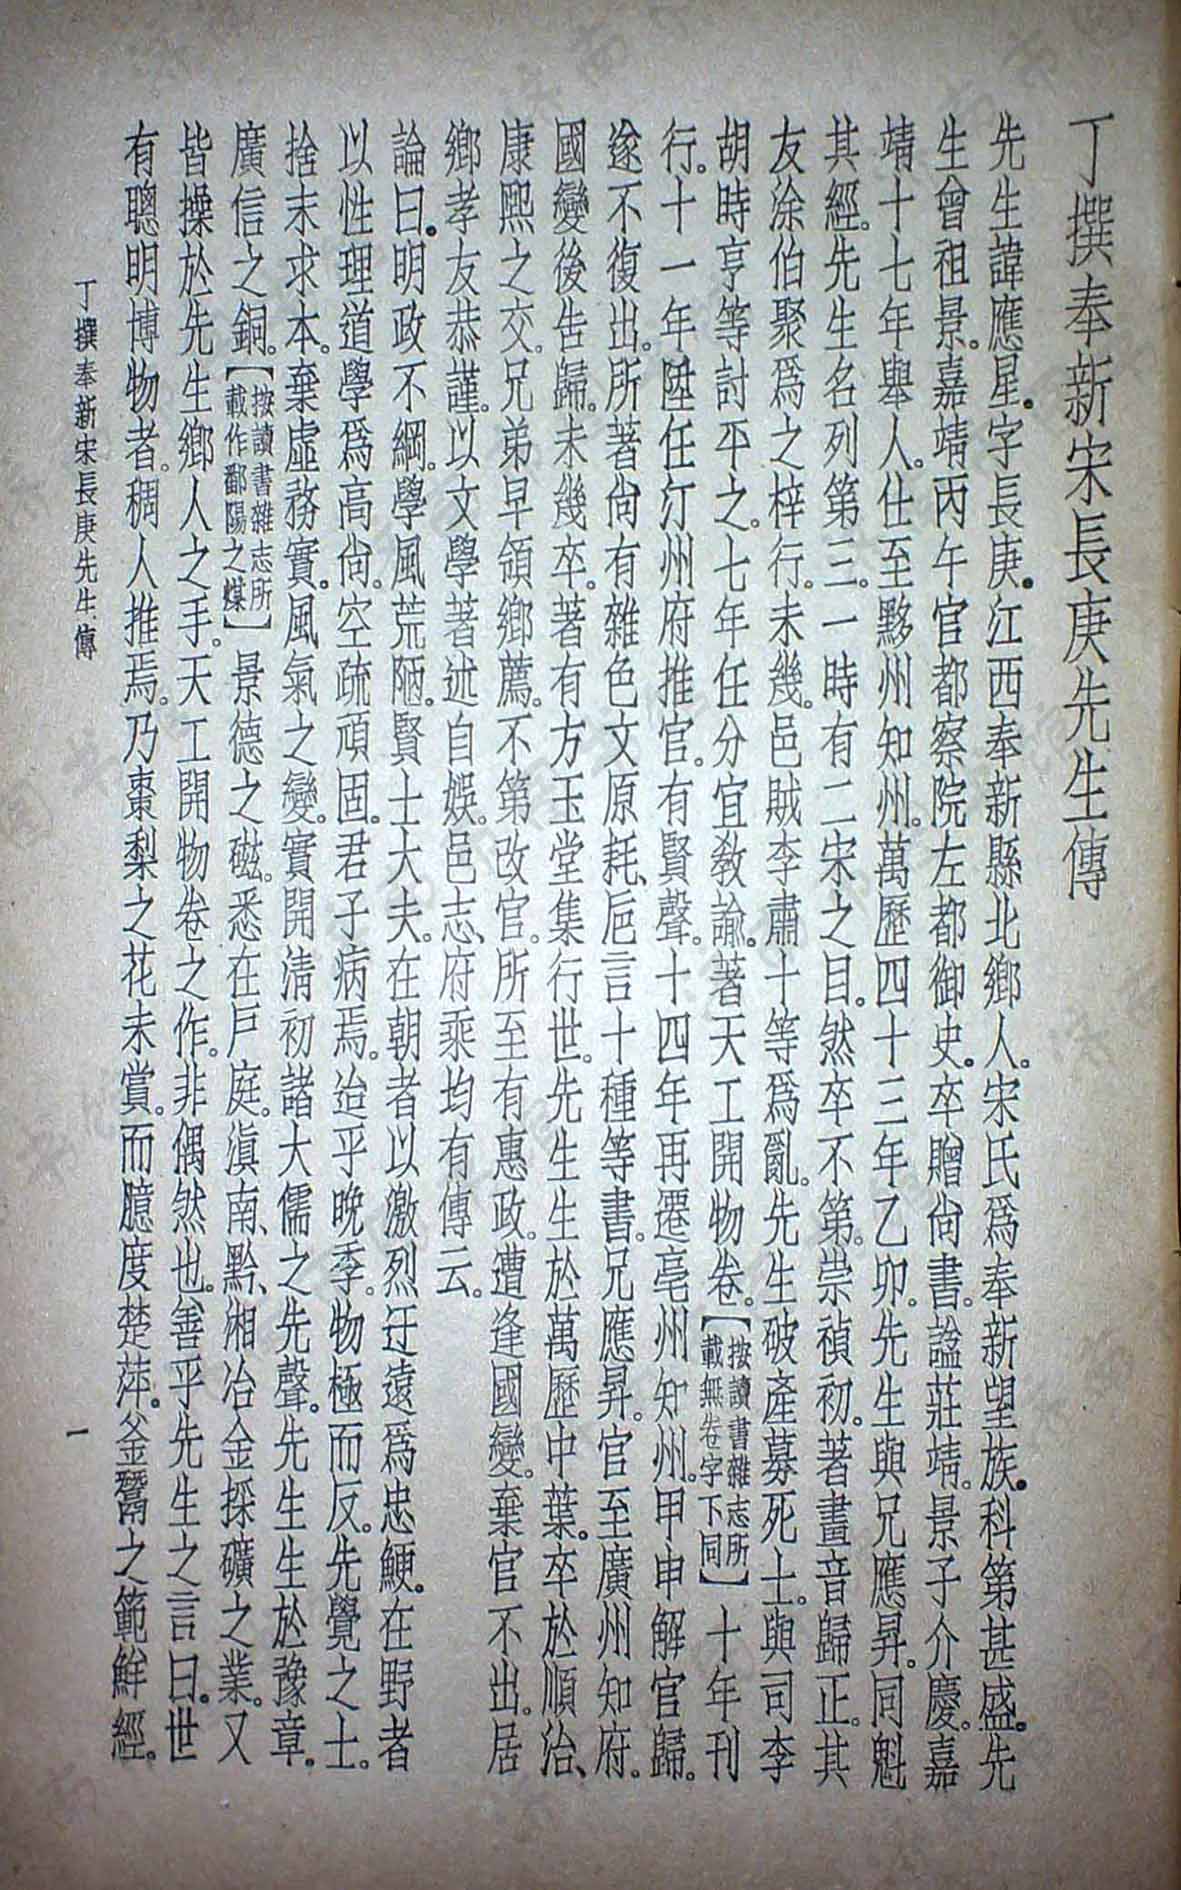 丁撰奉新宋長庚先生傳
先生諱應星。字長庚。江西奉新縣北鄉人。宋氏爲奉新望族。科第甚盛。先
生曾祖景。嘉靖丙午官都察院左都御史。卒贈尙書。諡莊靖。景子介慶。嘉
靖十七年舉人。仕至黟州知州。萬歷四十三年乙卯。先生與兄應昇。同魁
其經。先生名列第三。一時有二宋之目。然卒不第。崇禎初。著畫音歸正。其
友涂伯聚爲之梓行。未幾。邑賊李肅十等爲亂。先生破產募死士。與司李
胡時亨等討平之。七年任分宜敎諭。著天工開物卷。【按讀書雜志所載無卷字下同】十年刊
行。十一年陞任汀州府推官。有賢聲。十四年再遷亳州知州。甲申解官歸。
遂不復出。所著尙有雜色文原耗、巵言十種等書。兄應昇。官至廣州知府。
國變後告歸。未幾卒。著有方玉堂集行世。先生生於萬歷中葉。卒於順治、
康熙之交。兄弟早領鄉薦。不第改官。所至有惠政。遭逢國變。棄官不出。居
鄉孝友恭謹。以文學著述自娛。邑志、府乘均有傳云。
論曰。明政不綱。學風荒陋。賢士大夫。在朝者以激烈迂遠爲忠鯁。在野者
以性理道學爲高尙。空疏頑固。君子病焉。迨乎晚季。物極而反。先覺之士。
捨末求本。棄虛務實。風氣之變。實開淸初諸大儒之先聲。先生生於豫章。
廣信之銅。【按讀書雜志所載作鄱陽之煤】景德之磁。悉在戶庭。滇南、黔、湘冶金採礦之業。又
皆操於先生鄉人之手。天工開物卷之作。非偶然也。善乎先生之言曰。世
有聰明博物者。稠人推焉。乃棗梨之花未賞。而臆度楚萍。釜鬵之範鮮經。
丁撰奉新宋長庚先生傳
一